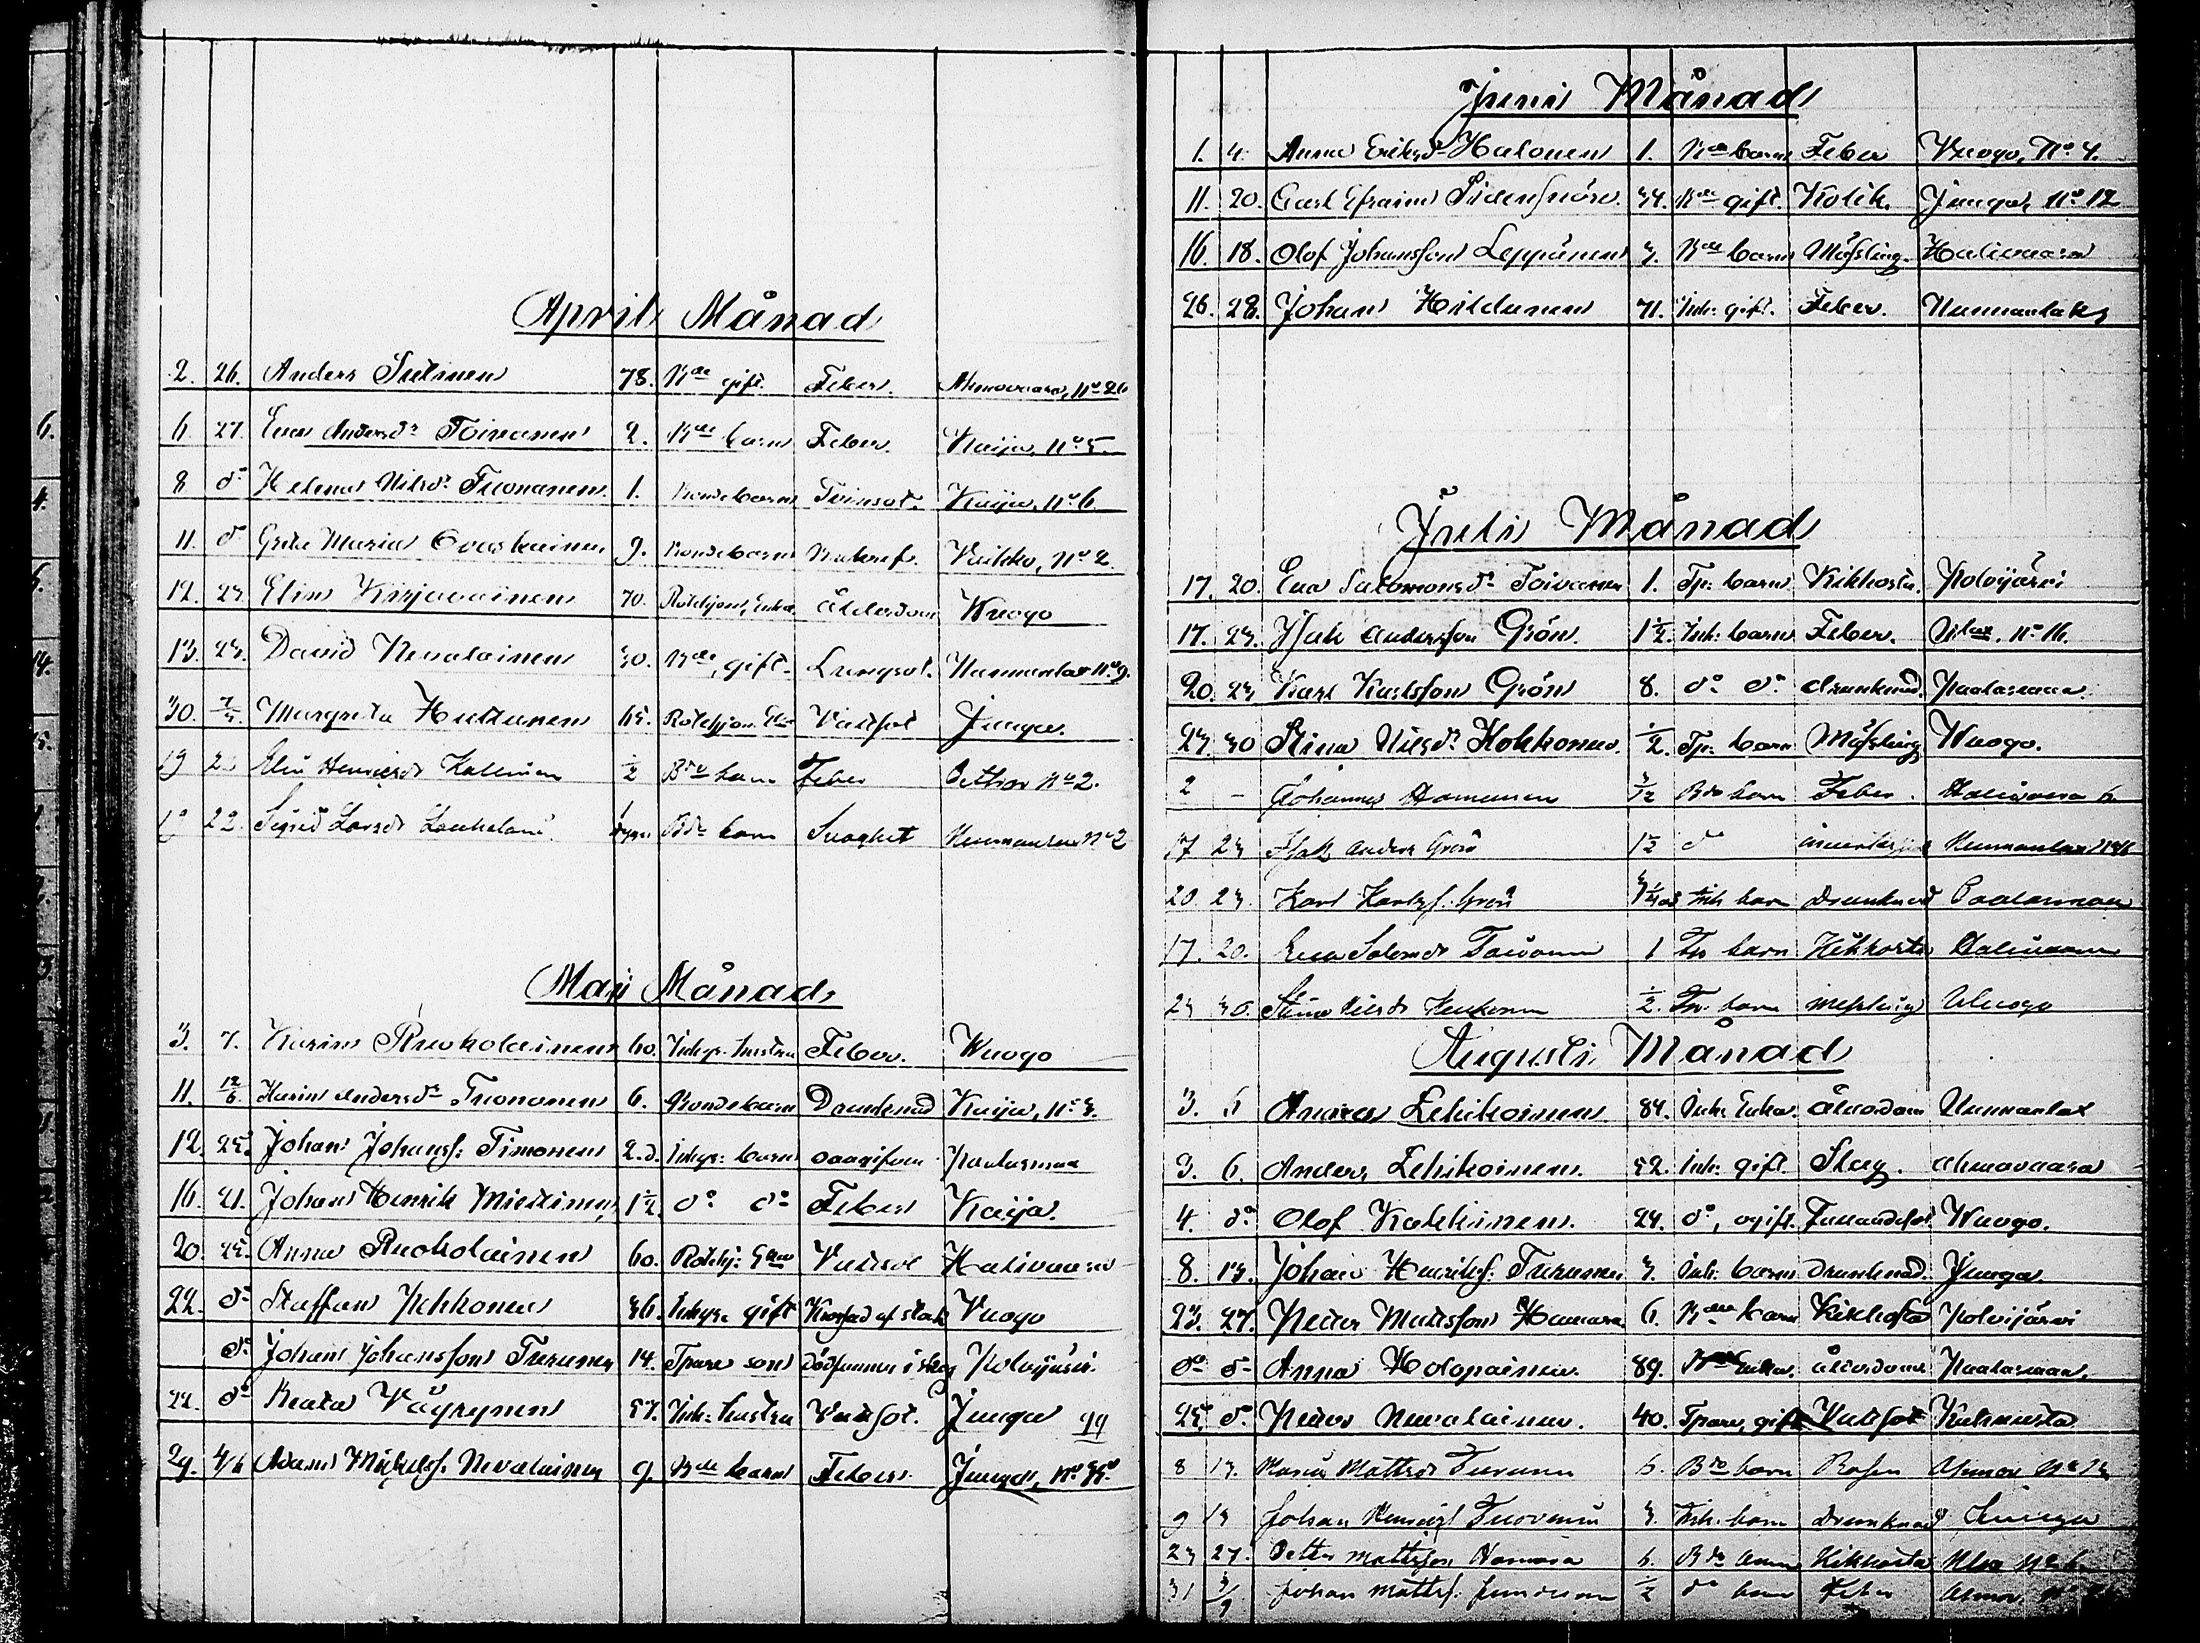 April Månad
2. 26. Anders Sutinen 78. Bde gift. Feber. Ahmovaara, No 26
6 27. Eva Andersdr Toivanen 2. Bde barn Feber. Kaija, No 5.
8 do Helena Nilsdr Tuononen. 1. Bondebarn Tvinsot. Kaija, No 6.
11. do Greta Maria Ovaskainen 9. Bondebarn No 2.
12. 23. Elin 70. Rotehjon, Enka ålderdom Wuogo
13. 23. David Nevalainen 30. Bde, gift. Lungsot. Nunnanlax No 9.
30. 7/5. Margreta Huttunen 65. Rotehjon Vattsot Juuga.
19 2 Elin Henricsdr 1/2 Bde barn Feber No 2.
19 22. Sigrid Larsdr Bde barn No 2
Maij Månad
3. 7. Karin Ruokolainen 60. Inhys. hustru Feber. Wuogo
11. 12/6. Karin Andersdr Tuononen 6. Bondebarn Drunknad Kaija, No 3.
12. 25. Johan Johansf: Timonen 2.d. Inhys: barn oangifven Paalasmaa
16. 21. Johan Henrik Miettinen, 1 1/2 do do Feber Kaija.
20. 25. Anna Ruokolainen 60. Rotehj: Vattsot Halivaara
22. do Staffan 36. Inhys. gift Krossad af stock Vuogo
do Johan Johansson Turunen 14. Tpare son Dödfunnen i skog Polvijärvi.
22. do Beata Väyrynen 57. Inh: hustru Vattsot. Juuga 99
29. 4/6 Adam Mickelsf. Nevalainen 9. Bde barn Feber. Juuga, No 35.
Juni Månad
1. 4. Anna Eriksdr Halonen 1. Bde barn Feber Vuogo, No 4.
11. 20. Carl Efraim Sidensnöre. 34. Bde gift. Kolik. Juuga, No 12
16. 18. Olof Johansson Leppänen 3. Bde barn Mässling. Halivaara
26. 28. Johan Hildunen 71. Inh: gift. Feber. Nunnanlaks
Juli Månad
17. 20. Eva Salomonsdr Toivanen 1. Tp: barn Kikhosta. Polvijärvi
17. 23. Isak Andersson Grön. 1 1/2. Inh: barn Feber. No 16.
20. 23 Karl Karlsson Grön 8. do do drunknad. Paalasmaa.
23. 30 Stina Nilsdr Kokkonen. 1/2. Tp: barn Mässling Wuogo.
2 - Johannes 3/12 Bde barn Feber. Halivaara 6.
17 23 Isak Anders Grön 1 1/2 do Nunnanlax No 16
20. 23. Karl Karlsf. Grön Inh barn Drunknad Paalasmaa
17. 20. Eva Salomdr Toivanen 1 Tp barn Kikhosta Halivaara
23 30. Stina Nilsdr 1/2. Tp. barn messling Wuogo
Augusti Månad
3. 5 Anna Lehikoinen. 84. Inh: Enka. Ålderdom Nunnanlax
3. 6. Anders Lehikoinen. 52. Inh: gift. Slag. Ahmovaara
4. do Olof Kakkinen. 24. do, ogift. Fallandesot Wuogo.
8. 13. Johan Henriksf. Turunen 3. Inh: barn Drunknad. Juuga
23. 27. Petter Matsson 6. Bde barn Kikhosta Polvijärvi
do do Anna Holopainen. 89. Bde Enka. ålderdom Paalasmaa.
25. do. Petter Nevalainen. 40. Tpare, gift Vattsot Kuhnusta
8 13. Maria Mattsdr Turunen 6. Bde barn Rosen Ahmov No 13
9 13 Johan Henricsf 3. Inh. barn Drunknad Juuga
23 27. Petter Mattsson 6. Bde barn Kikhosta No 6.
31 3/9 Johan Mattsf. 1/2 do barn Feber Ahmov.